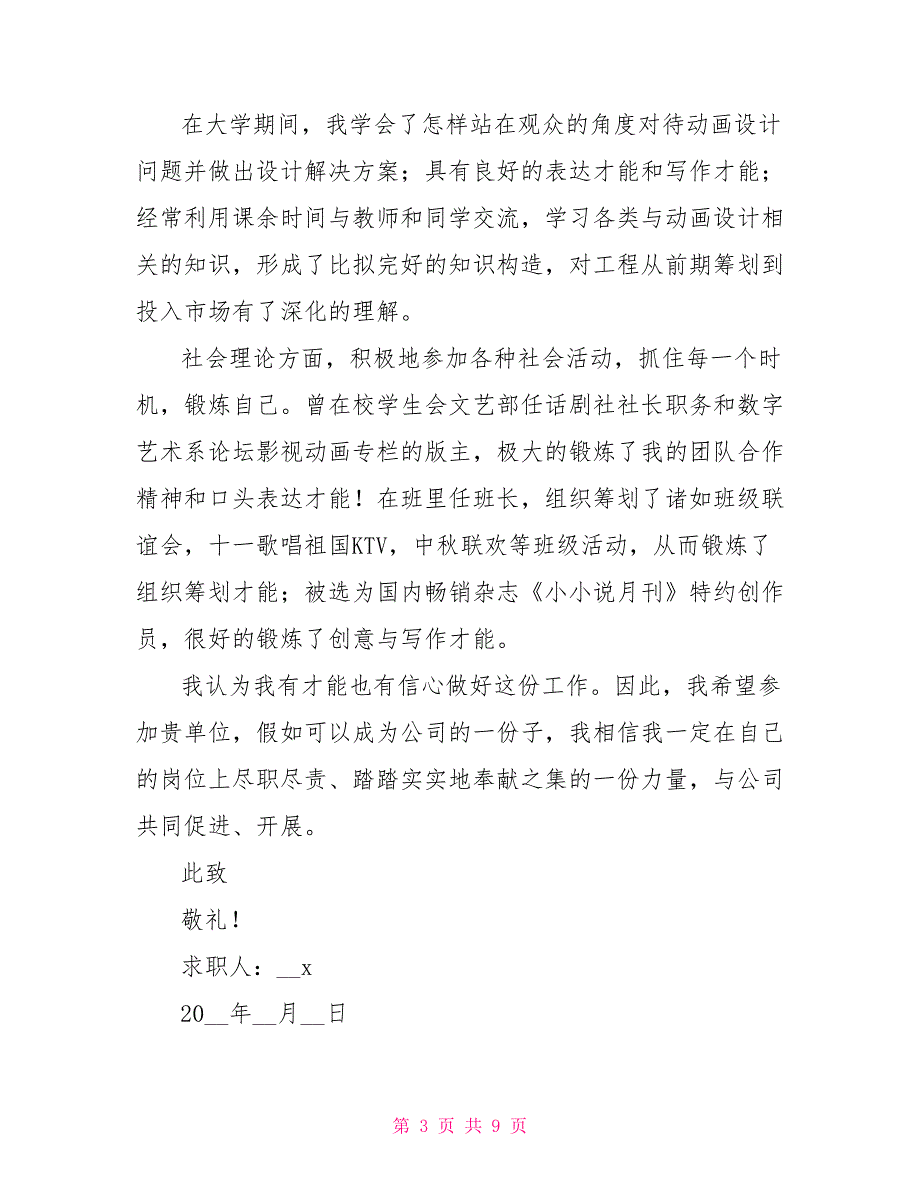 在大学期间，我学会了怎样站在观众的角度对待动画设计
问题并做出设计解决方案；具有良好的表达才能和写作才能；
经常利用课余时间与教师和同学交流，学习各类与动画设计相
关的知识，形成了比拟完好的知识构造，对工程从前期筹划到
投入市场有了深化的理解。
社会理论方面，积极地参加各种社会活动，抓住每一个时
机，锻炼自己。曾在校学生会文艺部任话剧社社长职务和数字
艺术系论坛影视动画专栏的版主，极大的锻炼了我的团队合作
精神和口头表达才能！在班里任班长，组织筹划了诸如班级联
谊会，十一歌唱祖国KTV，中秋联欢等班级活动，从而锻炼了
组织筹划才能；被选为国内畅销杂志《小小说月刊》特约创作
员，很好的锻炼了创意与写作才能。
我认为我有才能也有信心做好这份工作。因此，我希望参
加贵单位，假如可以成为公司的一份子，我相信我一定在自己
的岗位上尽职尽责、踏踏实实地奉献之集的一份力量，与公司
共同促进、开展。
此致
敬礼！
求职人：__x
20__年__月__日
第 3 页 共 9 页